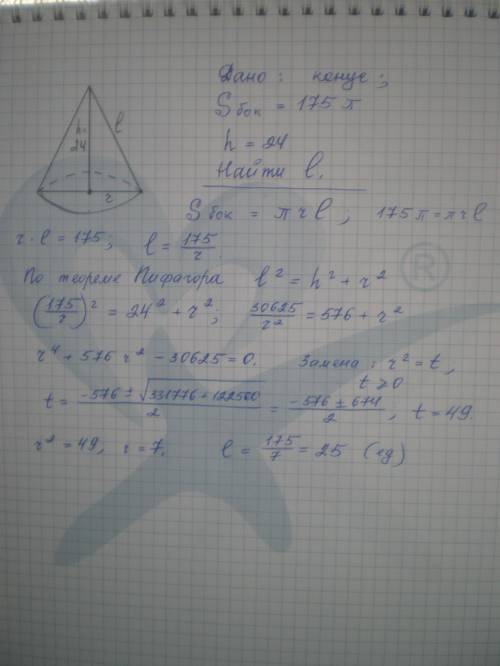 Дано: конус;
S бок = 175 π
h = 24
Найти l.
h = 24
l
r
S бок = π r l, 175 π = π r l
r · l = 175, l = 175/r.
По теореме Пифагора l² = h² + r²
(175/r)² = 24² + r²; 30625/r² = 576 + r²
r⁴ + 576 r² - 30625 = 0. Замена: r² = t,
t ⩾ 0
t = (-576 ± √(331776 + 122500))/2 = (-576 ± 674)/2, t = 49.
r² = 49, r = 7. l = 175/7 = 25 (ед)
®